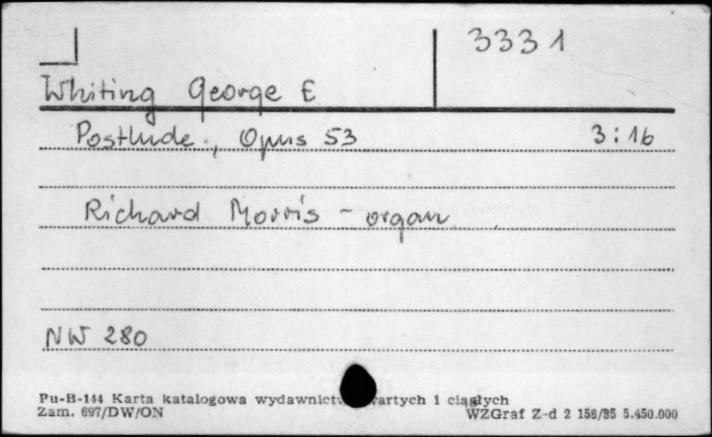 3331
Whiting George E
Postlude, Opus 53 3:16
Richard Morris - organ
NW 280
Pu-B-144 Karta katalogowa wydawnictw zwartych i ciągłych
Zam. 697/DW/ON WZGraf Z-d 2 158/85 5.450.000